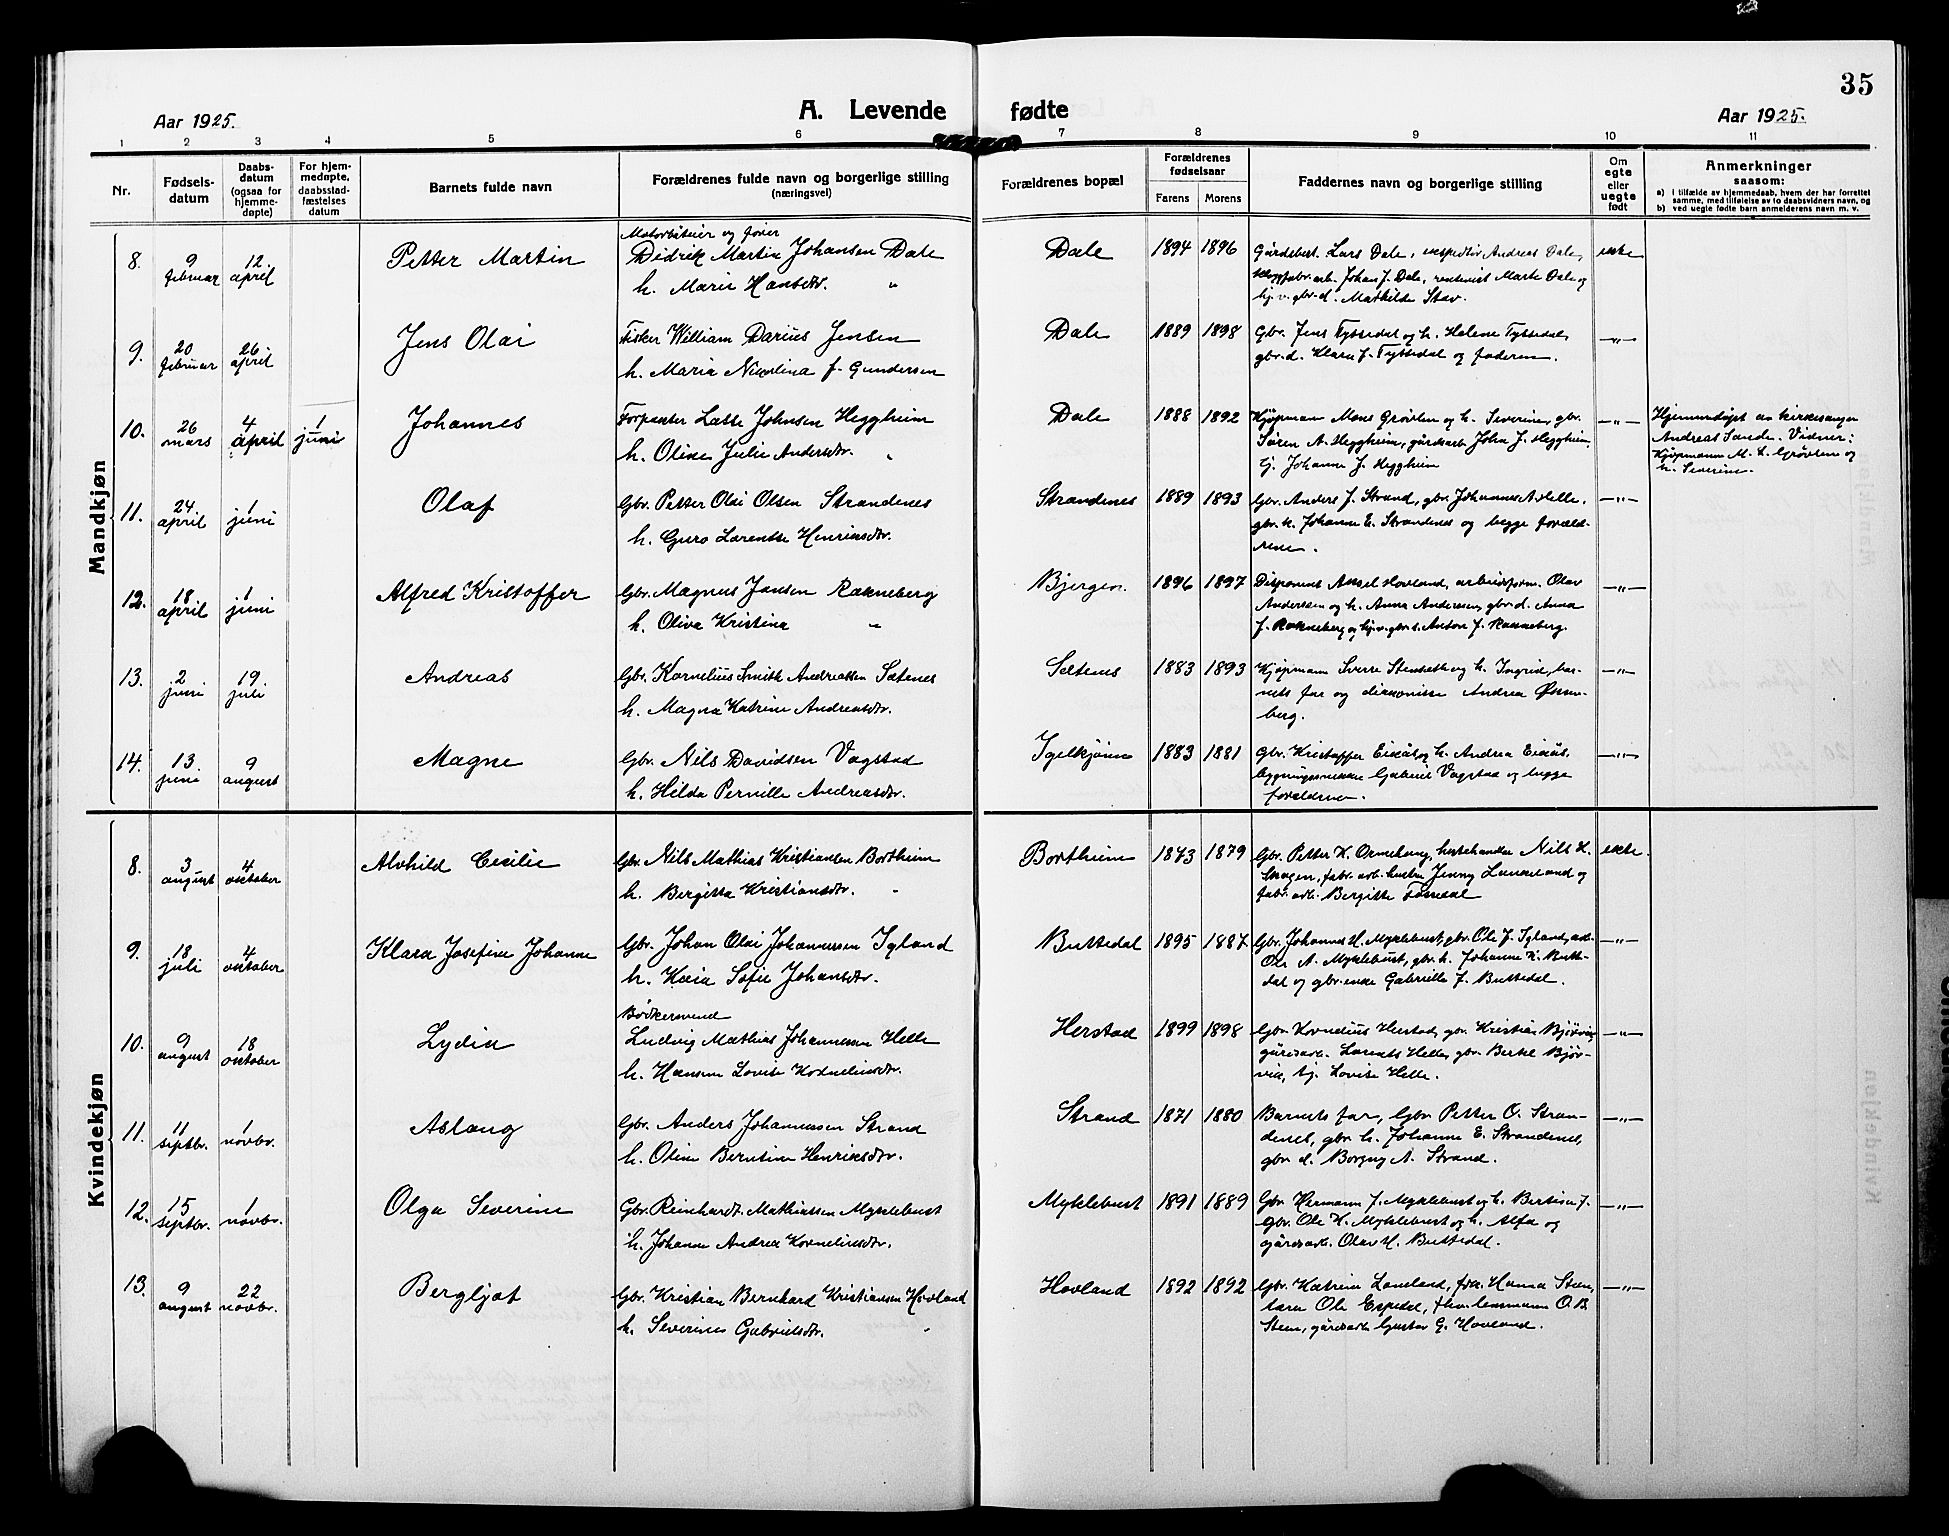 35
Aar 1925.
A. Levende fødte
Aar 1925.
1 2 3 4 5 6 7 8 9 10 11
Nr.
Fødsels-
datum
Daabs-
datum
(ogsaa for
hjemme-
døpte)
For hjem-
medøpte,
daabsstad-
fæstelses
datum
Barnets fulde navn
Forældrenes fulde navn og borgerlige stilling
(næringsvei)
Forældrenes bopæl
Forældrenes
fødselsaar
Farens Morens
Faddernes navn og borgerlige stilling
Om
egte
eller
uegte
født
Anmerkninger
saasom:
a) i tilfælde av hjemmedaab, hvem der har forrettet
samme, med tilføielse av to daabsvidners navn, og
b) ved uegte fødte barn anmelderens navn m. v.
Mandkjøn
8. 9 februar 12. april
Petter Martin
Motorbåteier og fører
Didrik Martin Johansen Dale
h. Marie Hansdtr. "
Dale 1894 1896
Gårdebest. Lars Dale, ekspeditør Andreas Dale,
fabr.arb. Johan J. Dale, Marte Dale og
hj. v. gbr. d. Mathilde Stav.
ekte
9. 20 februar 26 april
Jens Olai
Fisker William Darius Jensen
h. Maria Nikolina f. Gundersen
Dale 1889 1898
Gbr. Jens Tyssedal og h. Helene Tyssedal,
gbr.d. Klara J. Tyssedal og faderen.
—"—
10. 26 mars 4 april 1 juni
Johannes
Forpakter Lasse Johnsen Heggheim
h. Oline Julie Andersdtr. "
Dale 1888 1892
Kjøpmann Mons Grøvlen og h. Severine, gbr.
Søren A. Heggheim, gårdsarb. John J. Heggheim,
tj. Johanne J. Heggheim
—"—
Hjemmedøpt av kirkesanger
Andreas Sande. Vidner:
Kjøpmann M. L. Grøvlen og
h. Severine.
11. 24 april 1 juni
Olaf
Gbr. Petter Olai Olsen Strandenes
h. Guro Lorentse Henriksdtr.
Strandenes 1889 1893
Gbr. Anders J. Strand, gbr. Johannes A. Helle,
gbr. h. Johanne E. Strandenes og begge foræld-
rene.
—"—
12. 18 april 1 juni
Alfred Kristoffer
Gbr. Magnus Jansen Rakneberg
h. Oliva Kristina "
Bjergen 1896 1897
Disponent Aksel Hovland, arbeidsform. Olav
Andersen og h. Anna Andersen, gbr.d. Anna
J. Rakneberg og hj.v. gbr.s. Anton J. Rakneberg.
—"—
13. 2 juni 19 juli
Andreas
Gbr. Kornelius Smith Andreassen Sætenes
h. Magna Katrine Andreasdtr.
Setenes 1883 1893
Kjøpmann Sverre Stenseth og h. Ingrid, bar-
nets far og diakonisse Andrea Øren-
berg.
—"—
14. 13. juni 9 august
Magne
Gbr. Nils Davidsen Vagstad
h. Hilda Pernille Andreasdtr.
Igelkjøn 1883 1881
Gbr. Kristoffer Eikås og h. Andrea Eikås,
bygningssnekker Gabriel Vagstad og begge
forældrene.
—"—
Kvindekjøn
8. 3 august 4 oktober
Alvhild Cecilie
Gbr. Nils Mathias Kristiansen Bortheim
h. Bergitta Kristiansdtr. "
Bortheim 1873 1879
Gbr. Petter K. Ormehaug, hestehandler Nils H.
Skogen, fabr.arb. hustru Jenny Luneland og
fabr.arb. Bergitte Fossedal
ekte.
9. 18 juli 4 oktober
Klara Josefine Johanne
Gbr. Johan Olai Johannessen Igland
h. Kaia Sofie Johansdtr.
Buttedal 1895 1887
Gbr. Johannes H. Myklebust, gbr. Ole J. Igland, arb.
Ole A. Myklebust, gbr. h. Johanne K. Butte-
dal og gbr.enke Gabrielle J. Buttedal.
—"—
10. 9 august 18 oktober
Lydia
Bødkersvend
Ludvig Mathias Johannessen Helle
h. Hansine Lovise Korneliusdtr.
Herstad 1899 1898
Gbr. Kornelius Herstad, gbr. Kristian Bjørvik,
gårdsarb. Lorents Helle, gbr. Bertel Bjør-
vik, tj. Lovise Helle.
—"—
11. 11 septbr. 1 novbr.
Aslaug
Gbr. Anders Johannessen Strand
h. Oline Berntine Henriksdtr.
Strand 1871 1880
Barnets far, Gbr. Petter O. Stran-
denes, gbr. h. Johanne E. Strandenes,
gbr. d. Borgny A. Strand.
—"—
12. 15 septbr. 1 novbr.
Olga Severine
Gbr. Reinhardt Mathiassen Myklebust
h. Johanne Andrea Korneliusdtr.
Myklebust 1891 1889
Gbr. Hermann J. Myklebust og h. Bertine J.
gbr. Ole K. Myklebust og h. Alfa og
gårdsarb. Olav H. Buttedal.
—"—
13. 9 august 22 novbr.
Bergljot
Gbr. Kristian Bernhard Kristiansen Hovland
h. Severine Gabrielsdtr. "
Hovland 1892 1892
Gbr. Katrine Loneland, frk. Hanna Steen,
lærer Ole Espedal, fhv. lensmann O. B.
Steen, gårdsarb. Gustav G. Hovland.
—"—